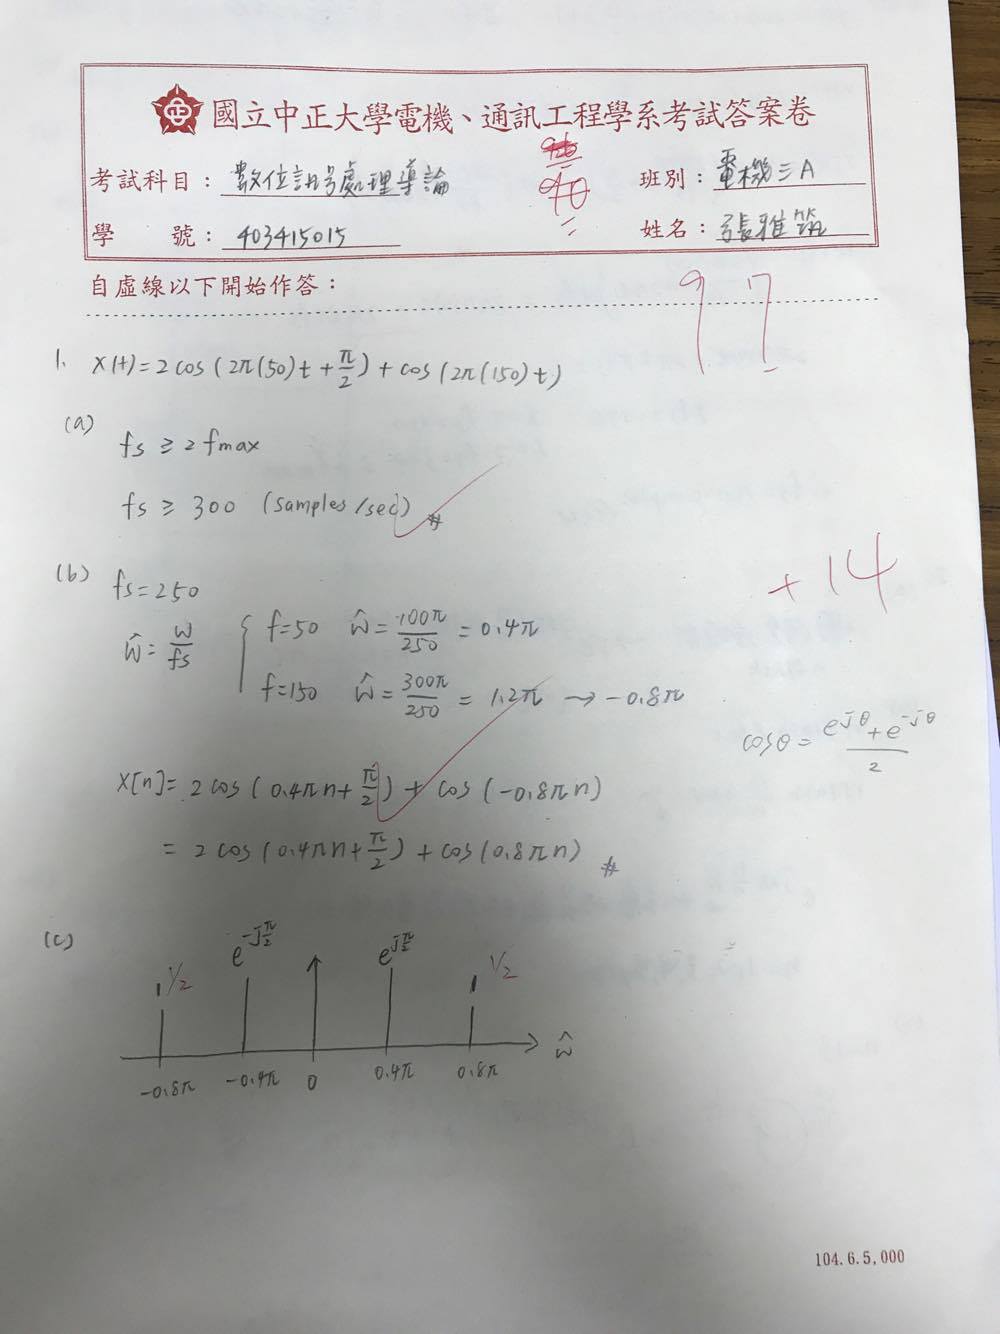 國立中正大學電機、通訊工程學系考試答案卷
考試科目：數位訊號處理導論
90
班別：電機三A
學 號：403415015
姓名：張雅筑
自虛線以下開始作答：
97
1. x(t)=2cos(2π(50)t+π/2)+cos(2π(150)t)
(a) fs ≥ 2fmax
fs ≥ 300 (samples/sec) #
+14
(b) fs=250
ŵ=w/fs { f=50 ŵ=100π/250=0.4π
f=150 ŵ=300π/250=1.2π → -0.8π
cosθ=(e^jθ+e^-jθ)/2
x[n]=2cos(0.4πn+π/2)+cos(-0.8πn)
=2cos(0.4πn+π/2)+cos(0.8πn) #
(c)
1/2 e^-jπ/2 e^jπ/2 1/2
ŵ
-0.8π -0.4π 0 0.4π 0.8π
104.6.5,000